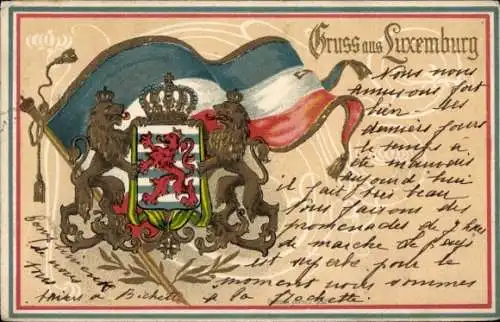 Gruss aus Luxemburg
Nous nous
amusons fort
bien - les
derniers jours
le temps a
été mauvais
aujourd'hui
il fait très beau
Nous faisons des
promenades de 2
de marche le pays
est superbe pour le
moment nous sommes
à la Rochette